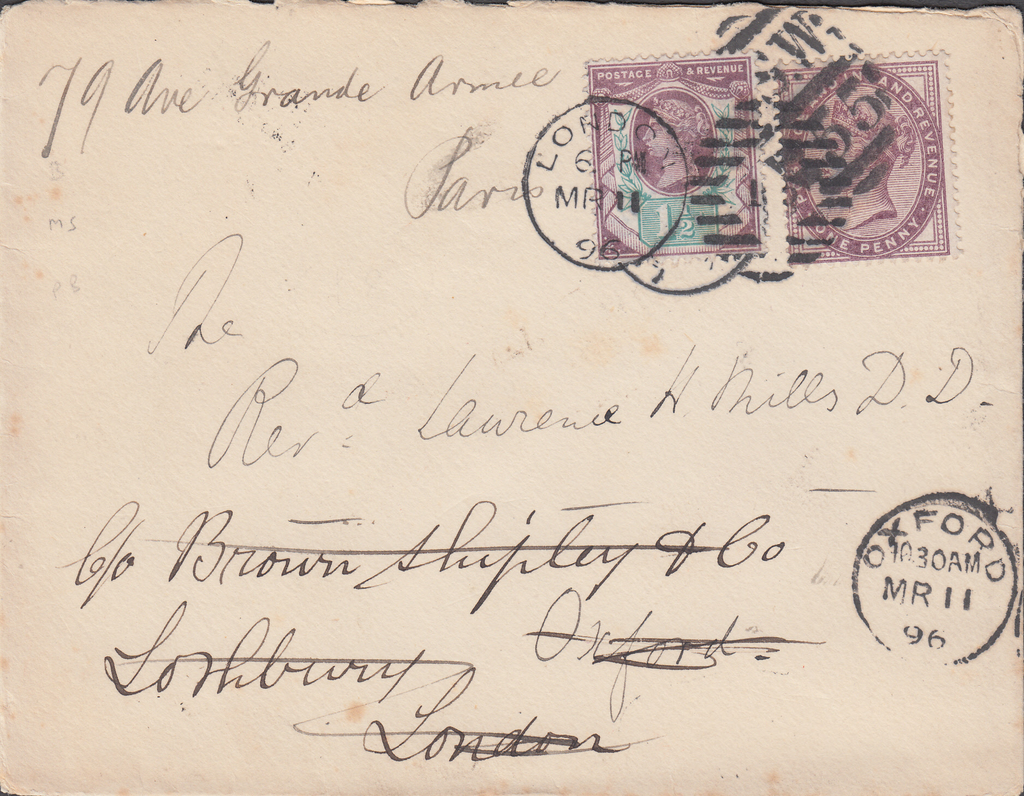 79 Ave Grande Armee
Paris
POSTAGE & REVENUE
1½
AND REVENUE
ONE PENNY
LONDON
6 PM
MR 11
96
The
Revd Lawrence H. Mills D.D.
c/o Brown Shipley & Co
Oxford
Lothbury
London
OXFORD
10.30AM
MR 11
96
B
MS
PB